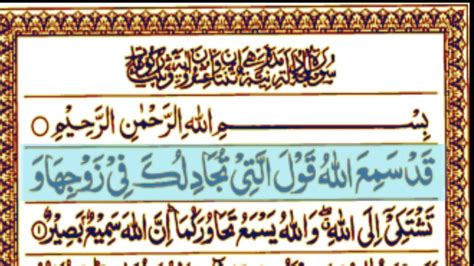 سُوْرَةُ الْمُجَادَلَةِ مَدَنِيَّةٌ
بِسْمِ اللهِ الرَّحْمٰنِ الرَّحِيْمِ ○
قَدْ سَمِعَ اللهُ قَوْلَ الَّتِیْ تُجَادِلُكَ فِیْ زَوْجِهَا وَ
تَشْتَكِیْۤ اِلَى اللهِ ۖۗ وَاللهُ یَسْمَعُ تَحَاوُرَكُمَا ؕ اِنَّ اللهَ سَمِیْعٌۢ بَصِیْرٌ ۝۱